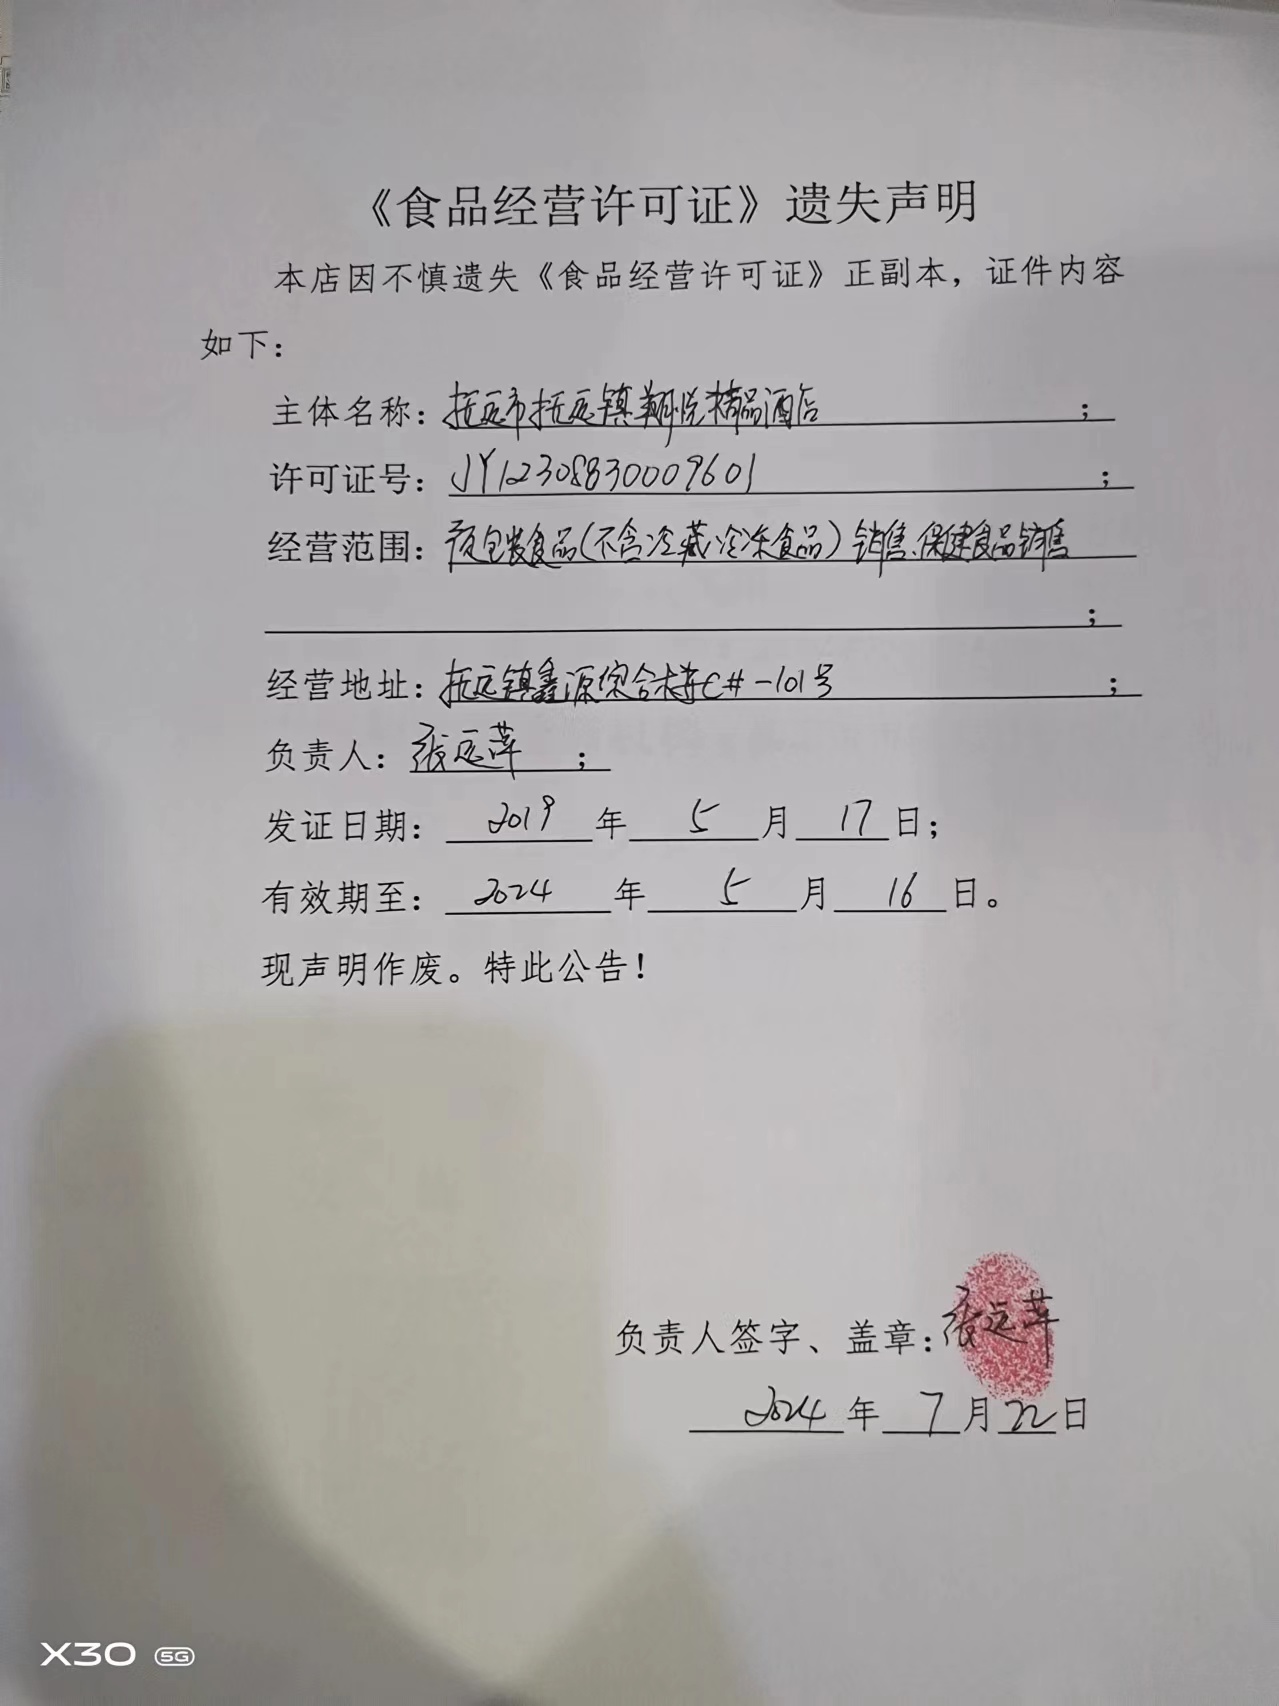 《食品经营许可证》遗失声明
本店因不慎遗失《食品经营许可证》正副本，证件内容
如下：
主体名称：抚远市抚远镇翔悦精品酒店；
许可证号：JY12308830009601；
经营范围：预包装食品(不含冷藏冷冻食品)销售、保健食品销售
；
经营地址：抚远镇鑫源综合楼C#-101号；
负责人：张远萍；
发证日期：2019年5月17日；
有效期至：2024年5月16日。
现声明作废。特此公告！
负责人签字、盖章：张远萍
2024年7月22日
X30 5G